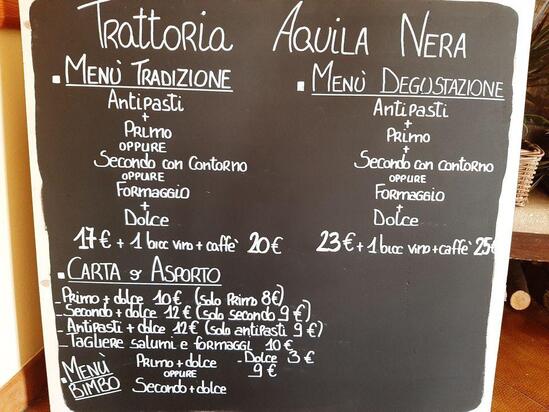 Trattoria Aquila Nera
. Menù Tradizione
Antipasti
+
Primo
oppure
Secondo con Contorno
oppure
Formaggio
+
Dolce
17€ + 1 bicc vino + caffè 20€
. Menù Degustazione
Antipasti
+
Primo
+
Secondo con contorno
oppure
Formaggio
+
Dolce
23€ + 1 bicc vino + caffè 25€
. Carta e Asporto
- Primo + dolce 10€ (solo Primo 8€)
- Secondo + dolce 12€ (solo secondo 9€)
- Antipasti + dolce 12€ (solo antipasti 9€)
- Tagliere salumi e formaggi 10€
- Dolce 3€
. Menù Bimbo
Primo + dolce
oppure 9€
Secondo + dolce